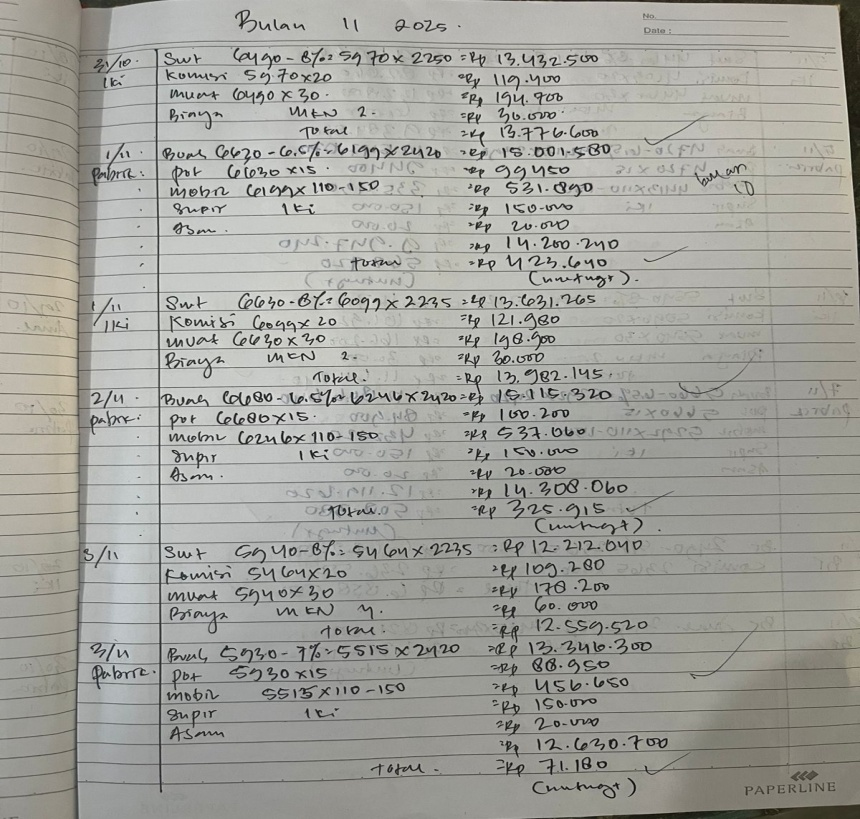 Bulan 11 2025.
No.
Date :
31/10 Swt 6490 - 8% = 5970 x 2250 = Rp 13.432.500
1ki Komisi 5970 x 20 = Rp 119.400
muat 6490 x 30. = Rp 194.700
Biaya MKN 2. = Rp 30.000
Total = Rp 13.776.600
1/11 Buah 6630 - 6.5% = 6199 x 2420 = Rp 15.001.580
pabrik. pot 6630 x 15. = Rp 99.450
mobil 6199 x 110 - 150 = Rp 531.890
bulan 10
supir 1ki = Rp 150.000
= Rp 20.000
= Rp 14.200.240
Total = Rp 423.640
(untung+).
1/11 Swt 6630 - 8% = 6099 x 2235 = Rp 13.631.265
1ki Komisi 6099 x 20 = Rp 121.980
muat 6630 x 30 = Rp 198.900
Biaya MKN 2. = Rp 30.000
Total. = Rp 13.982.145.
2/11 Buah 6680 - 6.5% = 6246 x 2420 = Rp 15.115.320
pabrik. pot 6680 x 15. = Rp 100.200
mobil 6246 x 110 - 150 = Rp 537.060
supir 1ki = Rp 150.000
= Rp 20.000
= Rp 14.308.060
Total. = Rp 325.915
(untung+).
3/11 Swt 5940 - 8% = 5464 x 2235 = Rp 12.212.040
Komisi 5464 x 20 = Rp 109.280
muat 5940 x 30 = Rp 178.200
Biaya MKN 4. = Rp 60.000
Total. = Rp 12.559.520
3/11 Buah 5930 - 7% = 5515 x 2420 = Rp 13.346.300
pabrik. pot 5930 x 15 = Rp 88.950
mobil 5515 x 110 - 150 = Rp 456.650
supir 1ki = Rp 150.000
= Rp 20.000
= Rp 12.630.700
Total. = Rp 71.180
(untung+)
PAPERLINE